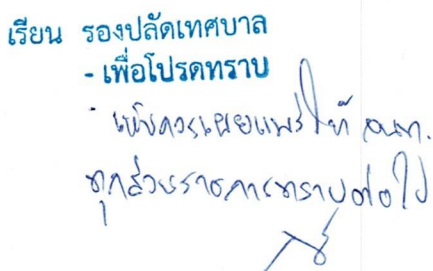 เรียน รองปลัดเทศบาล
- เพื่อโปรดทราบ
- เห็นควรเผยแพร่ให้
ทุกส่วนราชการทราบต่อไป